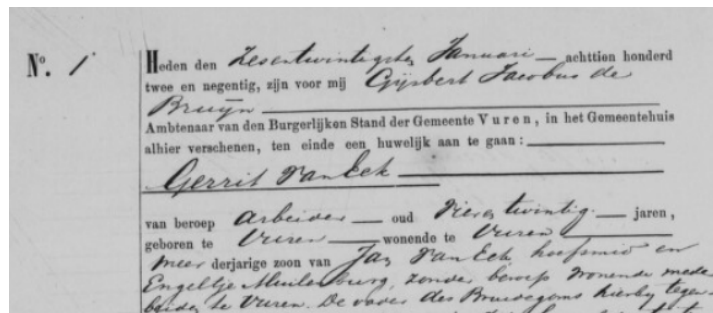 No. 1
Heden den Zesentwintigsten Januari — achttien honderd
twee en negentig, zijn voor mij Gijsbert Jacobus de
Bruijn
Ambtenaar van den Burgerlijken Stand der Gemeente Vuren, in het Gemeentehuis
alhier verschenen, ten einde een huwelijk aan te gaan:
Gerrit van Eck
van beroep arbeider — oud vier en twintig — jaren,
geboren te Vuren — wonende te Vuren
meerderjarige zoon van Jan van Eck, hoefsmid en
Engeltje Muilenburg, zonder beroep wonende mede
beiden te Vuren. De vader des Bruidegoms hierbij tegen